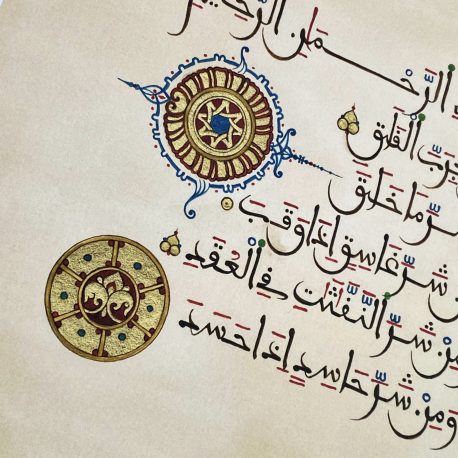 الرَّحْمَٰنِ الرَّحِيمِ
بِرَبِّ الْفَلَقِ
شَرِّ مَا خَلَقَ
شَرِّ غَاسِقٍ اِذَا وَقَبَ
مِن شَرِّ النَّفَّٰثَٰتِ فِے الْعُقَدِ
وَمِن شَرِّ حَاسِدٍ اِذَا حَسَدَ